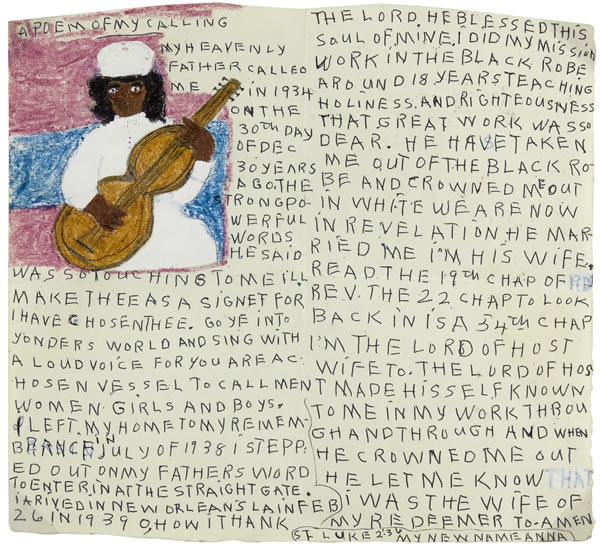 A POEM OF MY CALLING
MY HEAVENLY
FATHER CALLED
ME IN 1934
ON THE
30TH DAY
OF DEC
30 YEARS
AGO. THE
STRONG PO-
WERFUL
WORDS
HE SAID
WAS SO TOUCHING TO ME I'LL
MAKE THEE AS A SIGNET FOR
I HAVE CHOSEN THEE. GO YE INTO
YONDERS WORLD AND SING WITH
A LOUD VOICE FOR YOU ARE A C-
HOSEN VESSEL TO CALL MEN
WOMEN GIRLS AND BOYS.
I LEFT MY HOME TO MY REMEM-
BRANCE IN JULY OF 1938 I STEPP-
ED OUT ON MY FATHERS WORD
TO ENTER, IN AT THE STRAIGHT GATE.
I ARIVED IN NEW ORLEAN'S LAIN FEB
26 IN 1939 O, HOW I THANK
THE LORD, HE BLESSED THIS
SOUL OF MINE. I DID MY MISSION
WORK IN THE BLACK ROBE
AROUND 18 YEARS TEACHING
HOLINESS. AND RIGHTEOUSNESS
THAT GREAT WORK WAS SO
DEAR. HE HAVE TAKEN
ME OUT OF THE BLACK RO-
BE AND CROWNED ME OUT
IN WHITE WE ARE NOW
IN REVELATION HE MAR-
RIED ME I'M HIS WIFE.
READ THE 19TH CHAP OF
REV. THE 22 CHAP TO LOOK
BACK IN ISA 54TH CHAP
I'M THE LORD OF HOST
WIFE TO. THE LORD OF HOS
T MADE HISSELF KNOWN
TO ME IN MY WORK THROU
GH AND THROUGH AND WHEN
HE CROWNED ME OUT
HE LET ME KNOW THAT
I WAS THE WIFE OF
MY REDEEMER TO-AMEN
ST LUKE 2:36 MY NEW NAME ANNA